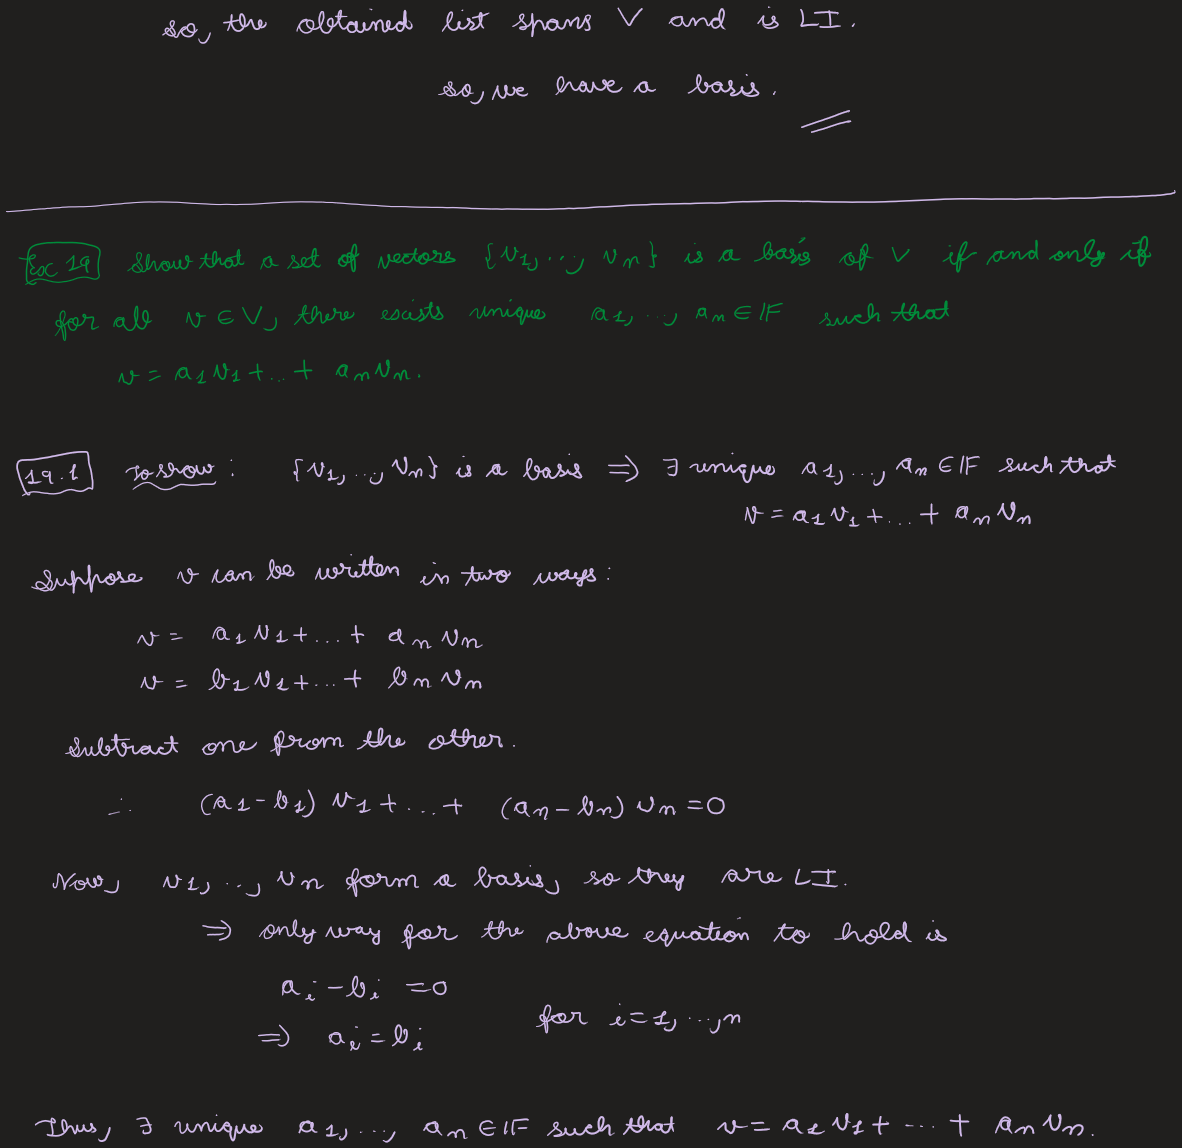 so, the obtained list spans V and is LI.
so, we have a basis.
Exc 19 Show that a set of vectors {v1, ..., vn} is a basis of V if and only if
for all v ∈ V, there exists unique a1, ..., an ∈ IF such that
v = a1v1 + ... + anvn.
19.1 To show : {v1, ..., vn} is a basis ⇒ ∃ unique a1, ..., an ∈ IF such that
v = a1v1 + ... + anvn
Suppose v can be written in two ways :
v = a1v1 + ... + anvn
v = b1v1 + ... + bnvn
Subtract one from the other.
∴ (a1 - b1) v1 + ... + (an - bn) vn = 0
Now, v1, ..., vn form a basis, so they are LI.
⇒ only way for the above equation to hold is
ai - bi = 0
for i = 1, ..., n
⇒ ai = bi
Thus, ∃ unique a1, ..., an ∈ IF such that v = a1v1 + ... + anvn.